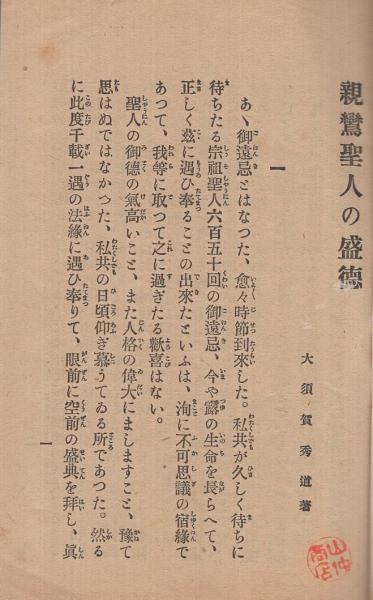 親鸞聖人の盛德
大須賀秀道著
一
あゝ御遠忌とはなつた、愈々時節到來した。私共が久しく待ちに
待ちたる宗祖聖人六百五十回の御遠忌、今や露の生命を長らへて、
正しく茲に遇ひ奉ることの出來たといふは、洵に不可思議の宿緣で
あつて、我等に取つて之に過ぎたる歡喜はない。
聖人の御德の氣高いこと、また人格の偉大にましますこと、豫て
思はぬではなかつた、私共の日頃仰ぎ慕うてゐる所であつた。然る
に此度千載一遇の法緣に遇ひ奉りて、眼前に空前の盛典を拜し、眞
一
山仲商店